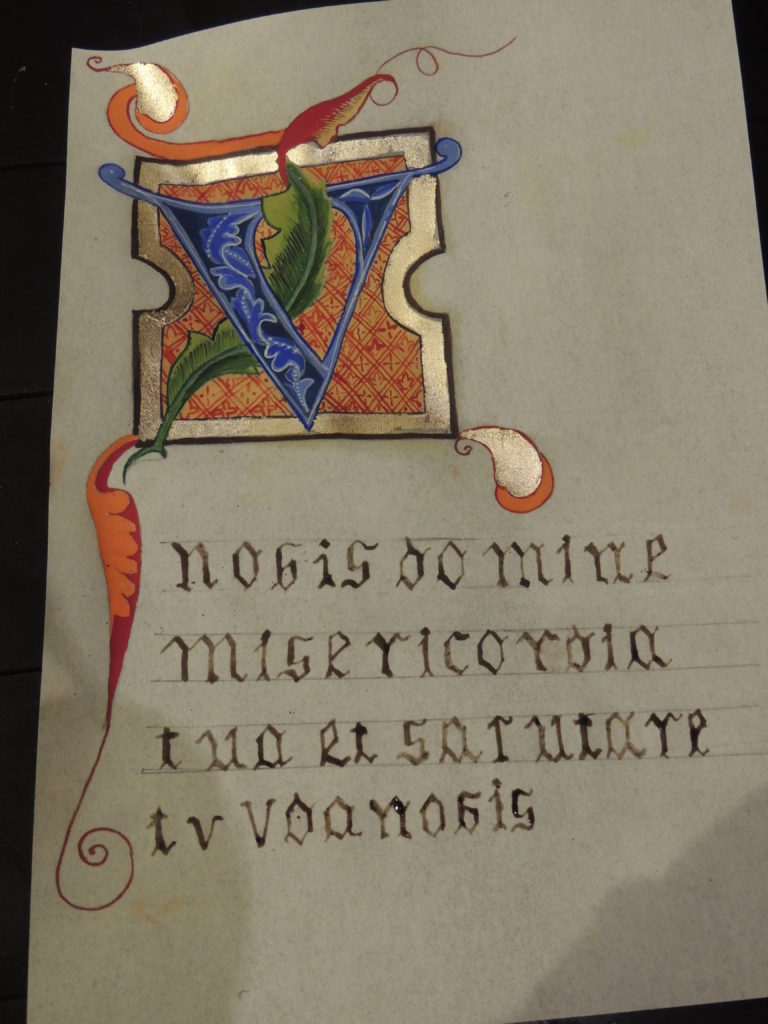 V
nobis domine
misericordia
tua et sarutare
tv Vdanobis